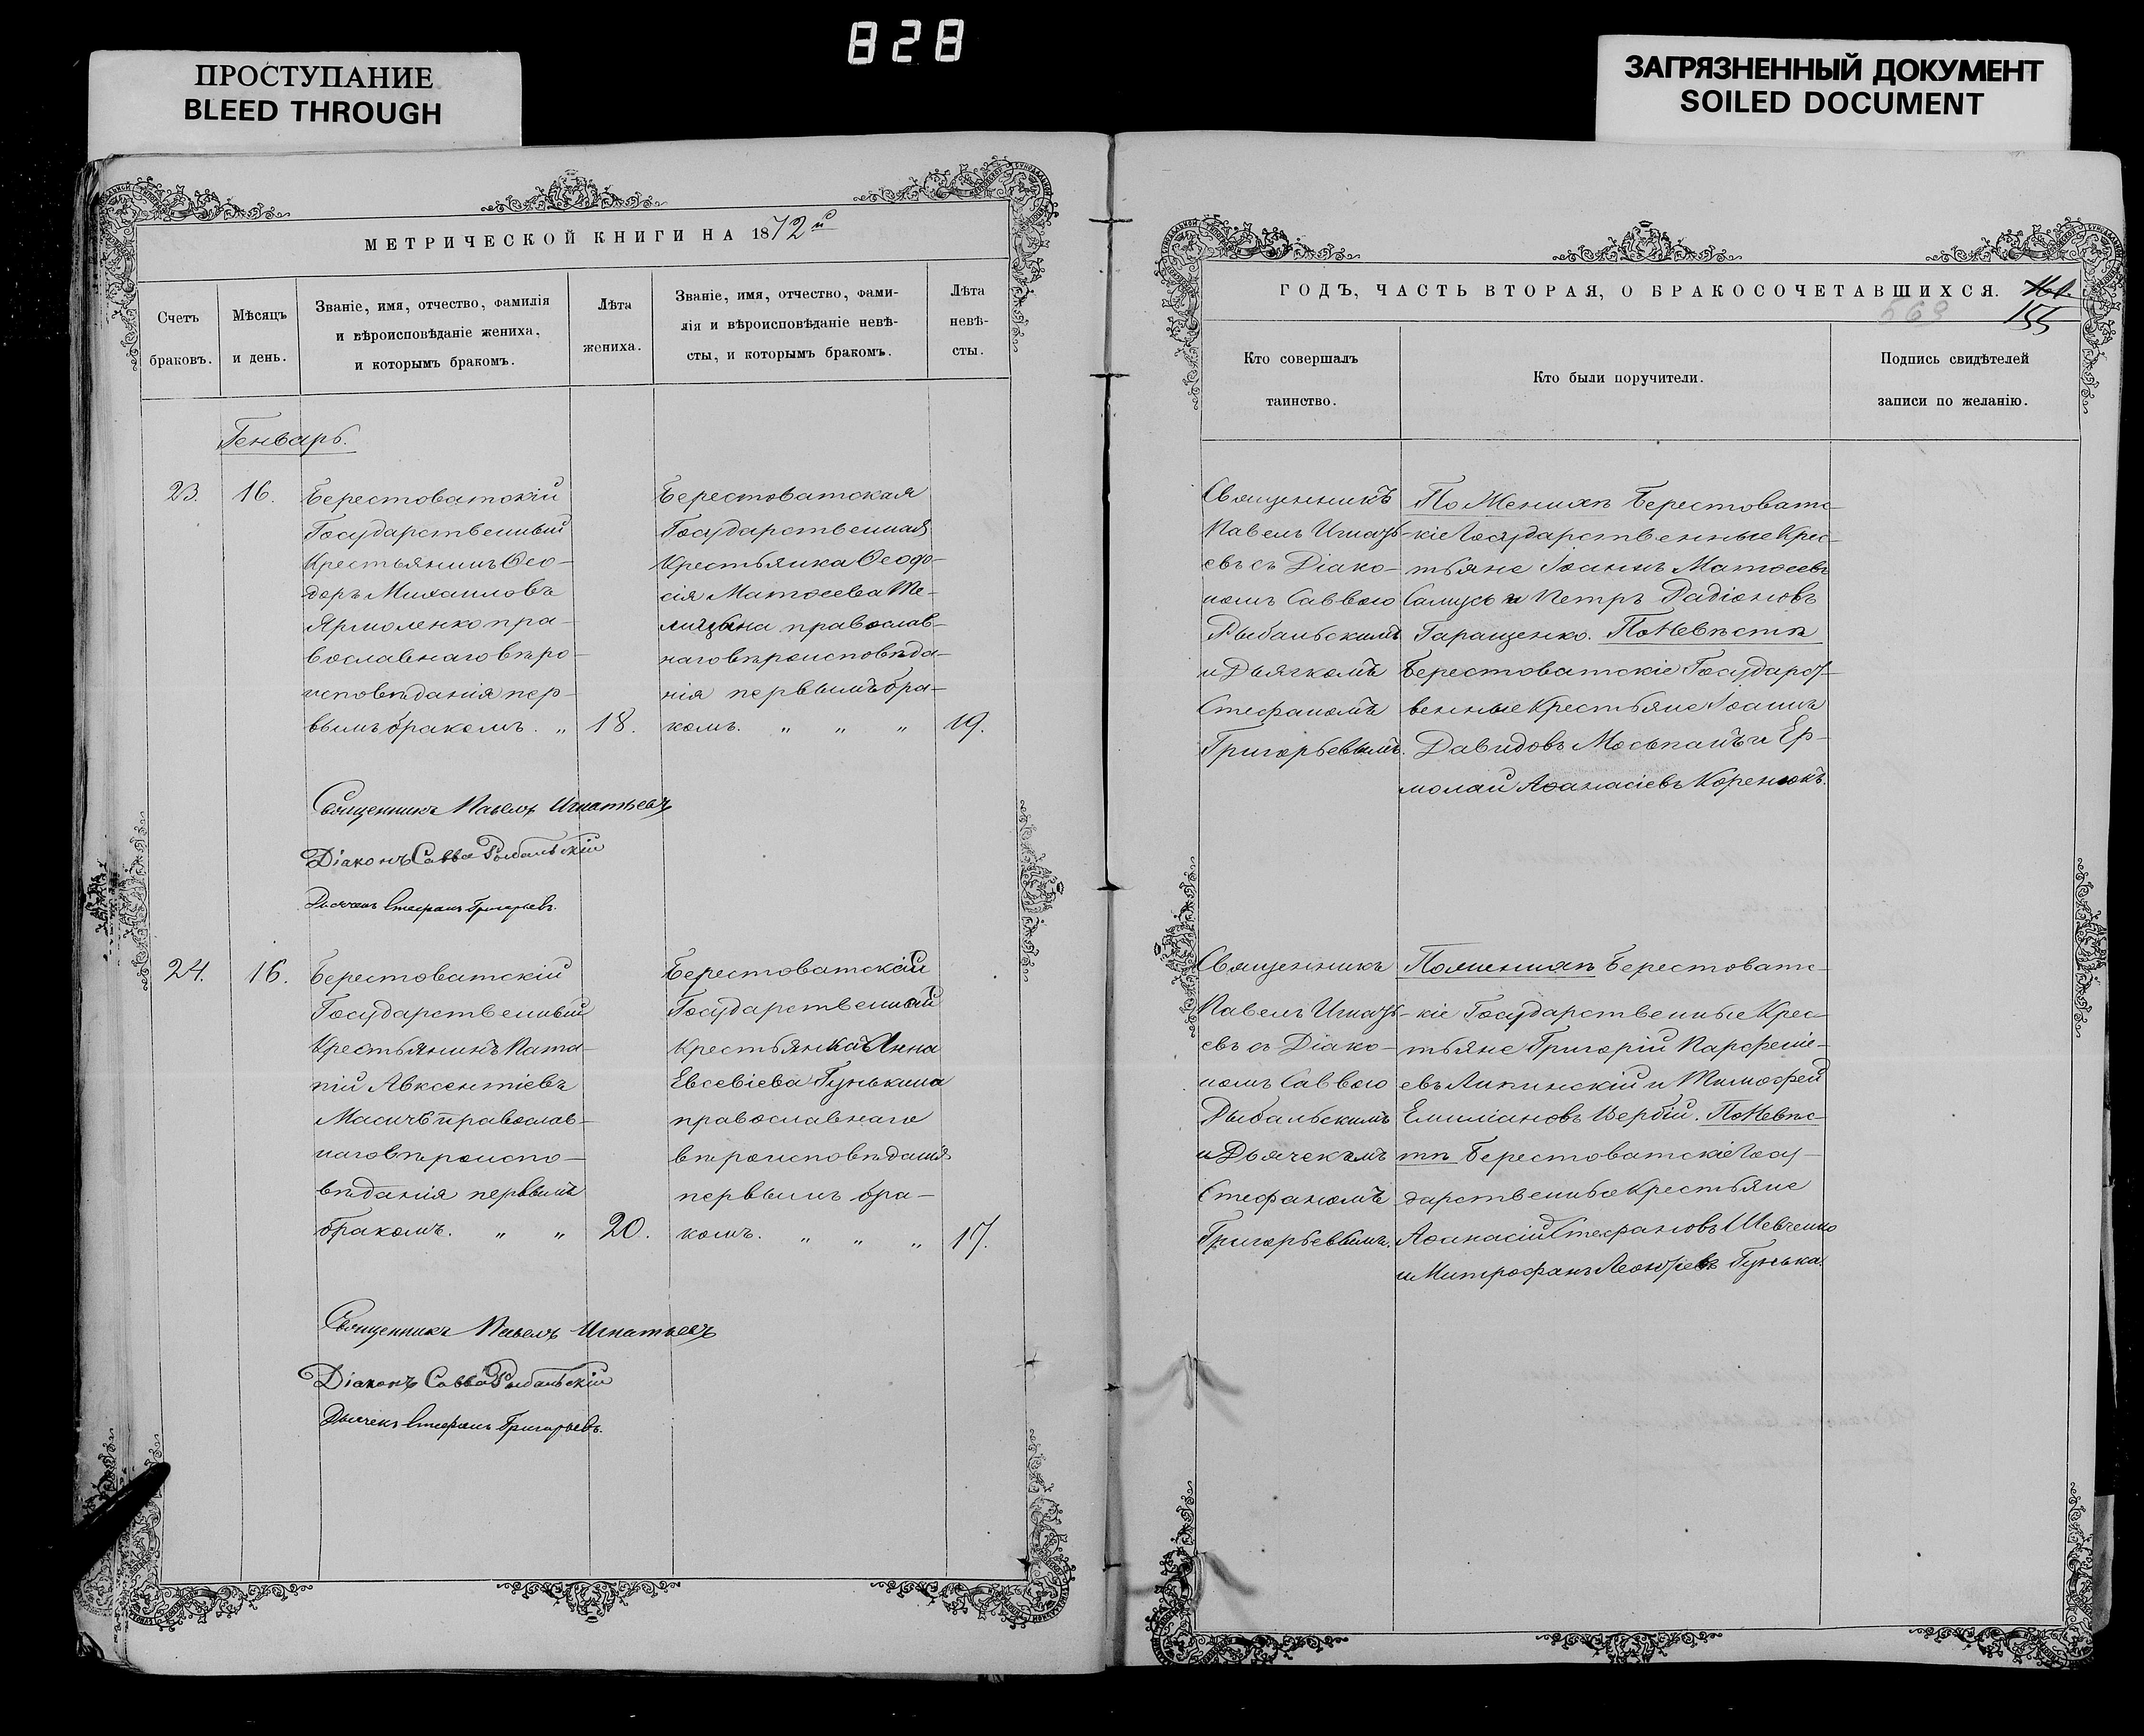 828
ПРОСТУПАНИЕ
BLEED THROUGH
ЗАГРЯЗНЕННЫЙ ДОКУМЕНТ
SOILED DOCUMENT
МЕТРИЧЕСКОЙ КНИГИ НА 1872й
Счетъ
браковъ.
Мѣсяцъ
и день.
Званіе, имя, отчество, фамилія
и вѣроисповѣданіе жениха,
и которымъ бракомъ.
Лѣта
жениха.
Званіе, имя, отчество, фами-
лія и вѣроисповѣданіе невѣ-
сты, и которымъ бракомъ.
Лѣта
невѣ-
сты.
Генварь.
23.
16.
Берестоватскій
Государственный
Крестьянинъ Ѳео-
доръ Михаиловъ
Ярмоленко пра-
вославнаго вѣро-
исповѣданія пер-
вымъ бракомъ. „
18.
Берестоватская
Государственная
Крестьянка Ѳеодо-
сія Матѳеева
православ-
наго вѣроисповѣда-
нія первымъ бра-
комъ. „ „ „
19.
Священникъ Павелъ Игнатьевъ
Діаконъ Савва Рыбальскій
Дьячекъ Стефанъ Григорьевъ.
24.
16.
Берестоватскій
Государственный
Крестьянинъ Пата-
пій Авксентіевъ
Масичъ православ-
наго вѣроиспо-
вѣданія первымъ
бракомъ. „ „
20.
Берестоватскій
Государственный
Крестьянка Анна
Евсевіева Гунькина
православнаго
вѣроисповѣданія
первымъ бра-
комъ. „ „ „
17.
Священникъ Павелъ Игнатьевъ
Діаконъ Савва Рыбальскій
Дьячекъ Стефанъ Григорьевъ.
ГОДЪ, ЧАСТЬ ВТОРАЯ, О БРАКОСОЧЕТАВШИХСЯ.
155
Кто совершалъ
таинство.
Кто были поручители.
Подпись свидѣтелей
записи по желанію.
Священникъ
Павелъ Игнать-
евъ съ Діако-
номъ Саввою
Рыбальскимъ
и Дьячкомъ
Стефаномъ
Григорьевымъ.
По Женихѣ Берестоватс-
кіе Государственные Крес-
тьяне Іоаннъ Матѳеевъ
Самусь и Петръ Радіоновъ
Геращенко. По Невѣстѣ
Берестоватскіе Государст-
венные Крестьяне Іоаннъ
Давидовъ Моспанъ и Ер-
молай Аѳанасіевъ Коренюкъ.
Священникъ
Павелъ Игнать-
евъ съ Діако-
номъ Саввою
Рыбальскимъ
и Дьячекомъ
Стефаномъ
Григорьевымъ.
По женихѣ Берестоватс-
кіе Государственные Крес-
тьяне Григорій Парфеніе-
евъ Липинскій и Тимофей
Емиліановъ Вербій. По Невѣс-
тѣ Берестоватскіе Госу-
дарственные Крестьяне
Аѳанасій Стефановъ Шевченко
и Митрофанъ Гунька.